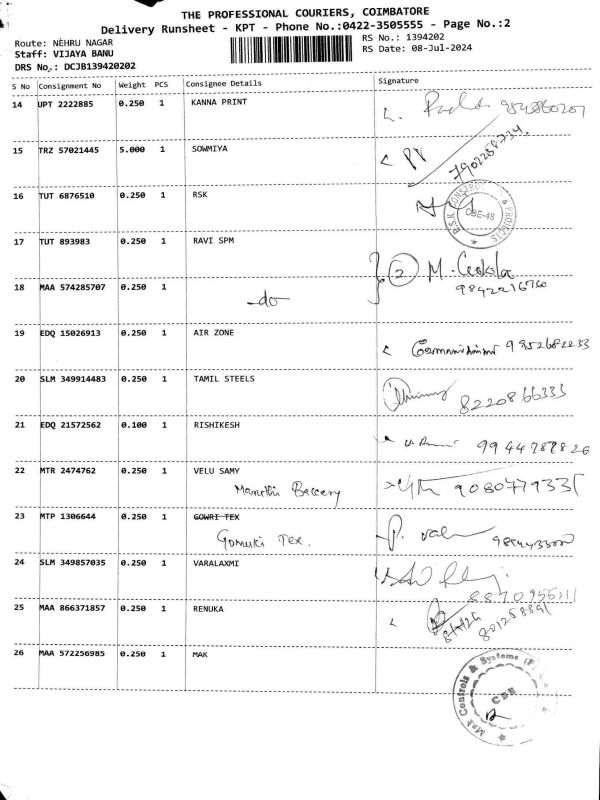 THE PROFESSIONAL COURIERS, COIMBATORE
Delivery Runsheet - KPT - Phone No.:0422-3505555 - Page No.:2
Route: NEHRU NAGAR
RS No.: 1394202
Staff: VIJAYA BANU
RS Date: 08-Jul-2024
DRS No.: DCJB139420202
S No Consignment No Weight PCS Consignee Details Signature
14 UPT 2222885 0.250 1 KANNA PRINT
15 TRZ 57021445 5.000 1 SOWMIYA
7902258734
16 TUT 6876510 0.250 1 RSK
R.S.K CONSTRO & PROJECTS CBE-48
17 TUT 893983 0.250 1 RAVI SPM
2 M.
18 MAA 574285707 0.250 1
-do
9842216760
19 EDQ 15026913 0.250 1 AIR ZONE
20 SLM 349914483 0.250 1 TAMIL STEELS
8220866333
21 EDQ 21572562 0.100 1 RISHIKESH
9944787826
22 MTR 2474762 0.250 1 VELU SAMY
9080779331
23 MTP 1306644 0.250 1 GOWRI TEX
Tex.
24 SLM 349857035 0.250 1 VARALAXMI
8870955111
25 MAA 866371857 0.250 1 RENUKA
26 MAA 572256985 0.250 1 MAK
Mak Controls & Systems (P)
CBE